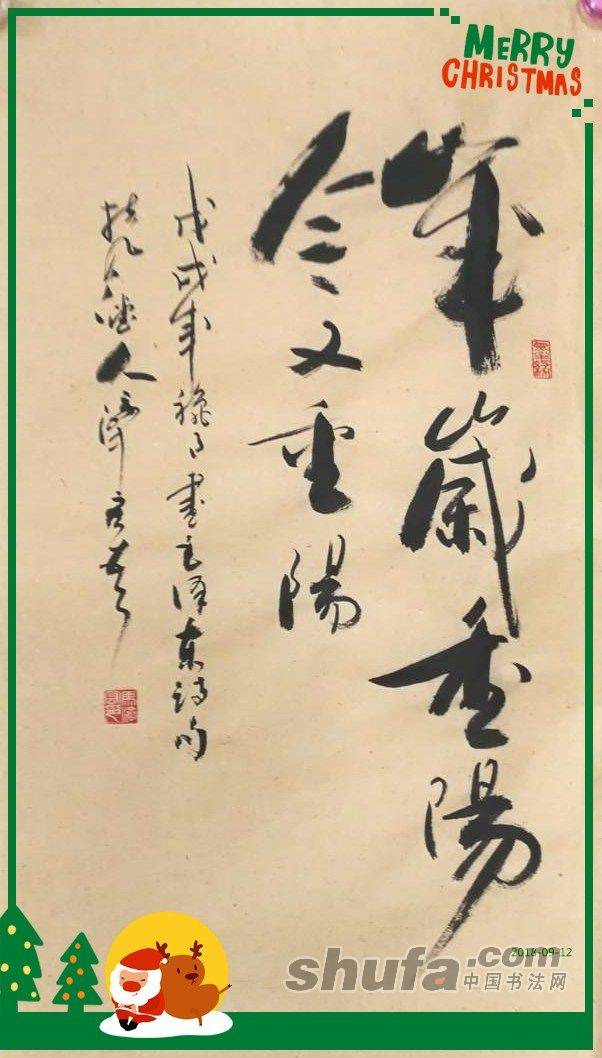 MERRY
CHRISTMAS
歲歲重陽
今又重陽
戊戌年穐月書毛泽東诗句
扶風人
2018-09-12
shufa.com
中国书法网